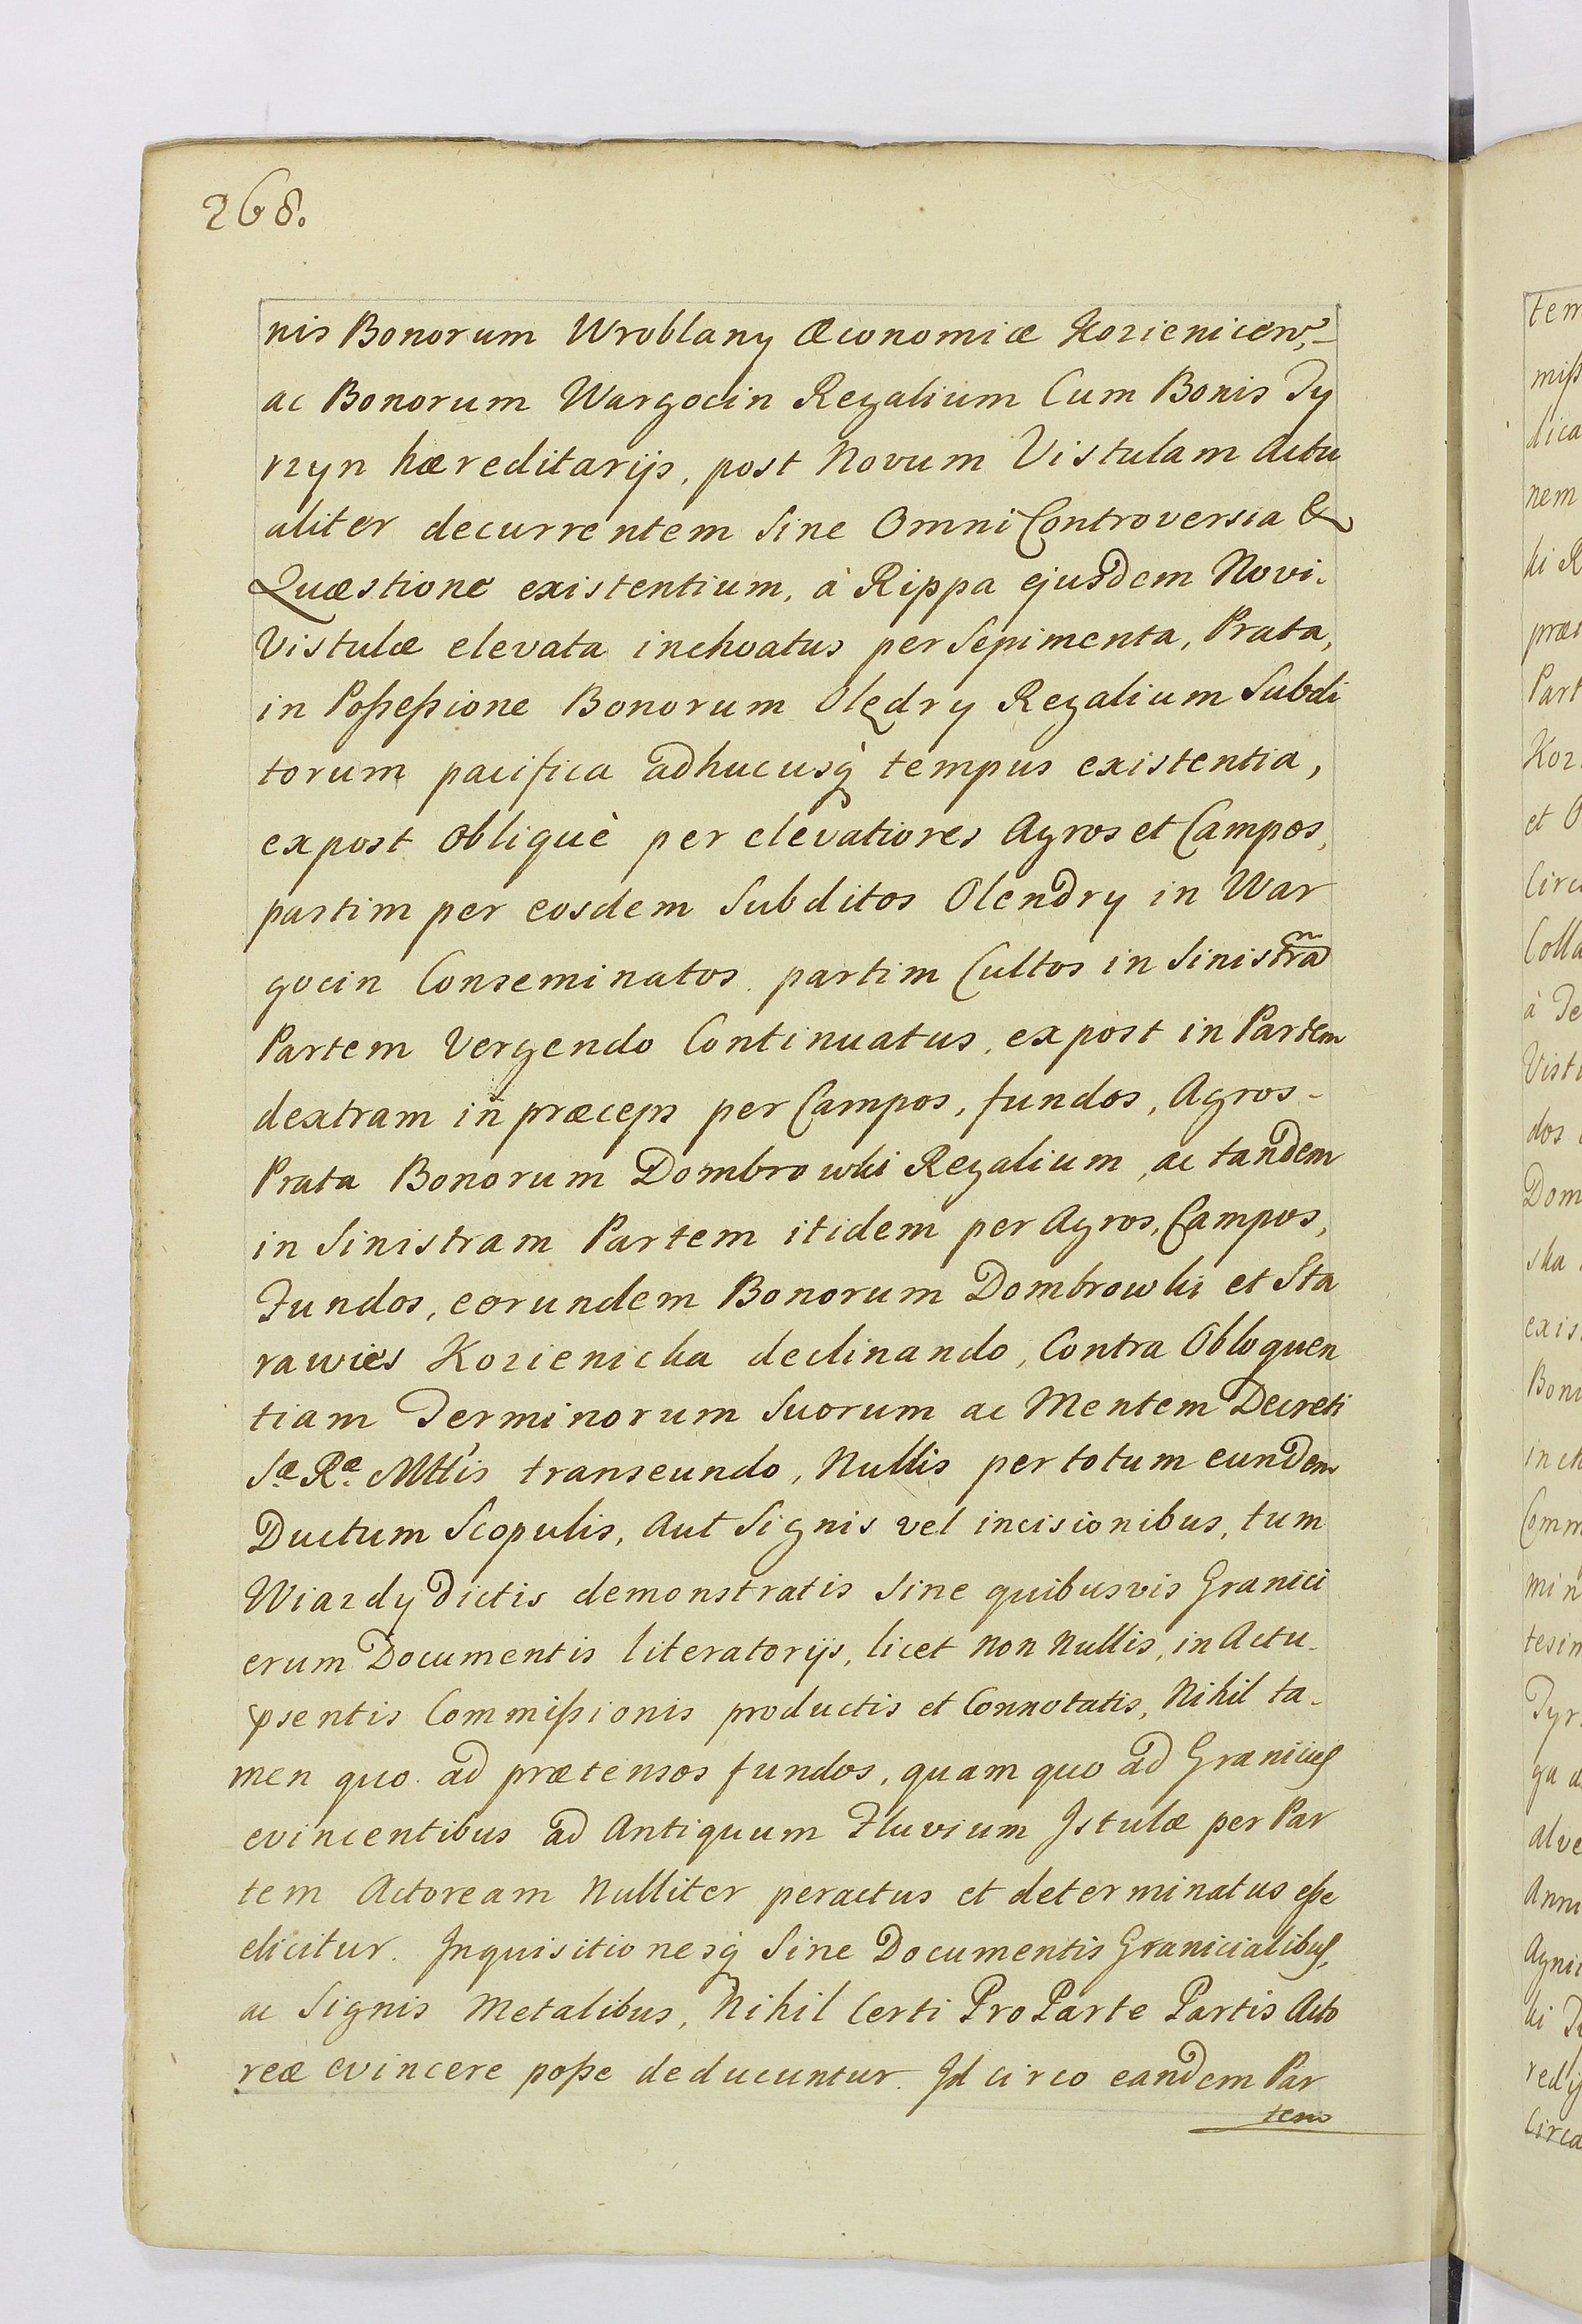 268.
nis Bonorum Wroblany Œconomiæ Kozienicen,
ac Bonorum Wargocin Regalium Cum Bonis Ty
rzyn hæreditarijs, post Novum Vistulam Actu
aliter decurrentem Sine Omni Controversia &
Quæstione existentium, à Rippa ejusdem Novi-
Vistulæ elevata inchoatus per Sepimenta, Prata,
in Poßeßione Bonorum Olędry Regalium Subdi
torum pacifica adhucusq tempus existentia,
expost Obliquè per elevatiores Agros et Campos,
partim per eosdem Subditos Olendry in War
gocin Conseminatos, partim Cultos in Sinistrã
Partem Vergendo Continuatus, expost in Partem
dextram in præceps per Campos, fundos, Agros-
Prata Bonorum Dombrowki Regalium, ac tandem
in Sinistram Partem itidem per Agros, Campos,
Fundos, eorundem Bonorum Dombrowki et Sta
rawies Kozienicka declinando, Contra Obloquen
tiam Terminorum Suorum ac Mentem Decreti
Sæ Ræ Mttis transeundo, Nullis per totum eundem
Ductum Scopulis, Aut Signis vel incisionibus, tum
Wiazdy Dictis demonstratis Sine quibusvis Granici
erum Documentis literatorijs, licet non Nullis, in Actu-
psentis Commißionis productis et Connotatis, Nihil ta-
men quo ad prætensos fundos, quam quo ad Granicies
evincentibus ad Antiquum Fluvium Istulæ per Par
tem Actoream Nulliter peractus et determinatus eße
elicitur. Inquisitionesq Sine Documentis Granicialibus,
ac Signis Metalibus, Nihil Certi Pro Parte Partis Acto
reæ evincere poße deducuntur. Id circo eandem Par
tem
tem
miß
dica
nem
ki R
præ
Part
Koz
et O
Circ
Colla
à Te
Vist
dos
Dom
ska
exis
Bon
inch
Comm
min
tesim
Tyr
ga
alve
Ann
Agni
ki
redij
Circa